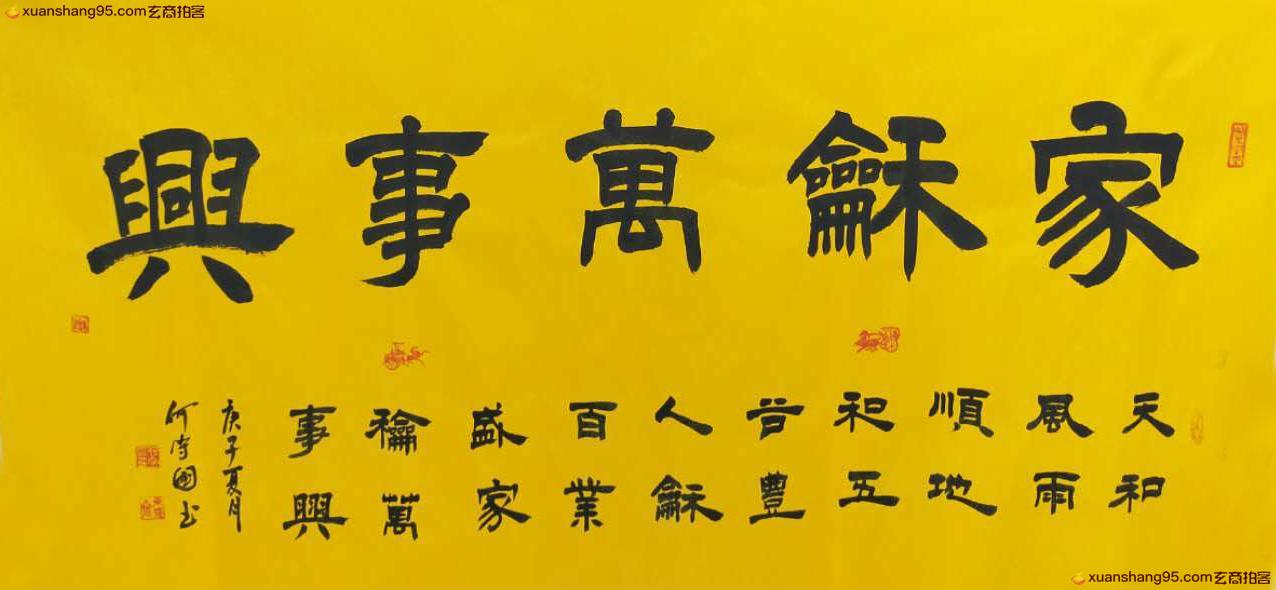 xuanshang95.com玄商拍客
家龢萬事興
天和
風雨
順地
和五
谷豐
人龢
百業
盛家
龢萬
事興
庚子夏月
xuanshang95.com玄商拍客